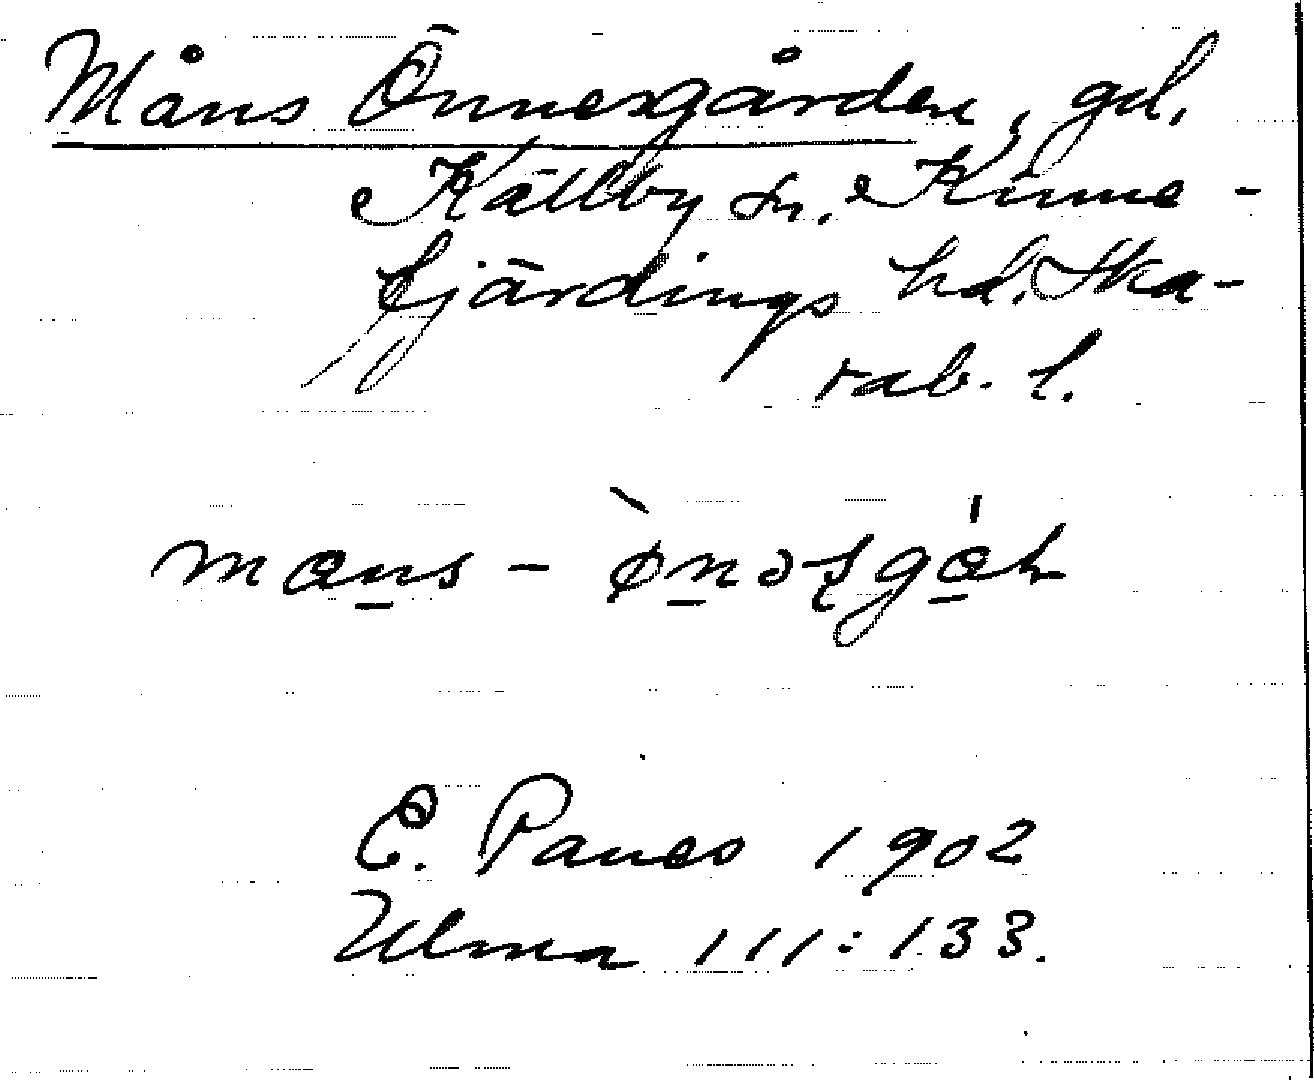 Måns Önnesgården, gd.
Källby sn. Kinne-
fjärdings hd. Ska-
rab. l.
E. Paneo 1902
Ulma 111:133.